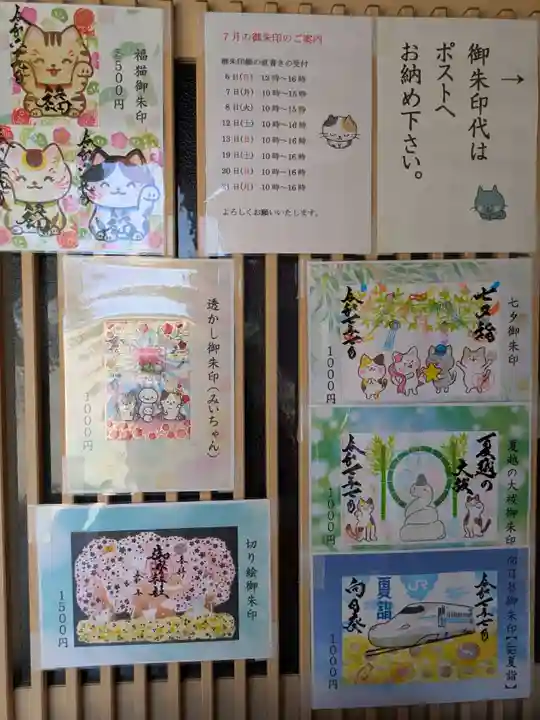 福猫御朱印
各500円
福
7月の御朱印のご案内
御朱印帳の直書きの受付
6日(日) 12時~16時
7日(月) 10時~15時
8日(火) 10時~15時
12日(土) 10時~16時
13日(日) 10時~16時
19日(土) 10時~16時
20日(日) 10時~16時
21日(月) 10時~16時
よろしくお願いいたします。
→
御朱印代は
ポストへ
お納め下さい。
透かし御朱印(みいちゃん)
1000円
七夕御朱印
1000円
七夕詣
夏越の大祓御朱印
1000円
夏越の
大祓
切り絵御朱印
1500円
1000円
JR
夏詣